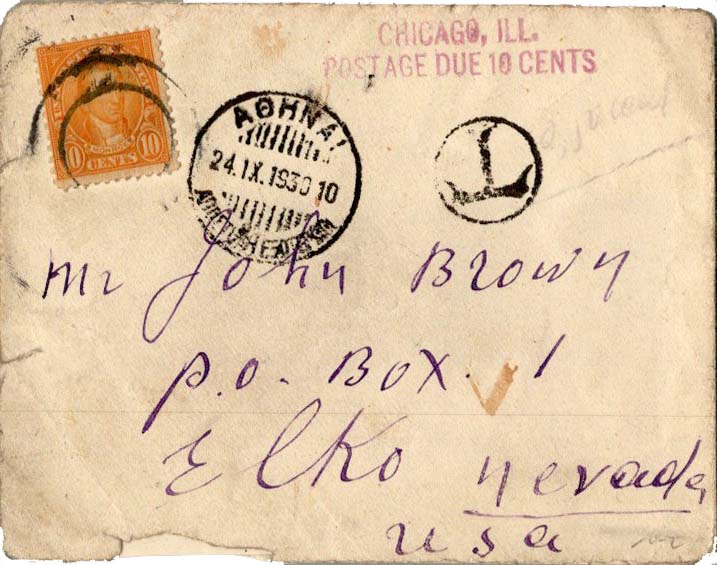 CHICAGO, ILL.
POSTAGE DUE 10 CENTS
MONROE
10 CENTS 10
ΑΘΗΝΑΙ
24.IX.1930 10
T
Mr John Brown
P.O. Box. 1
Elko Nevada
USA